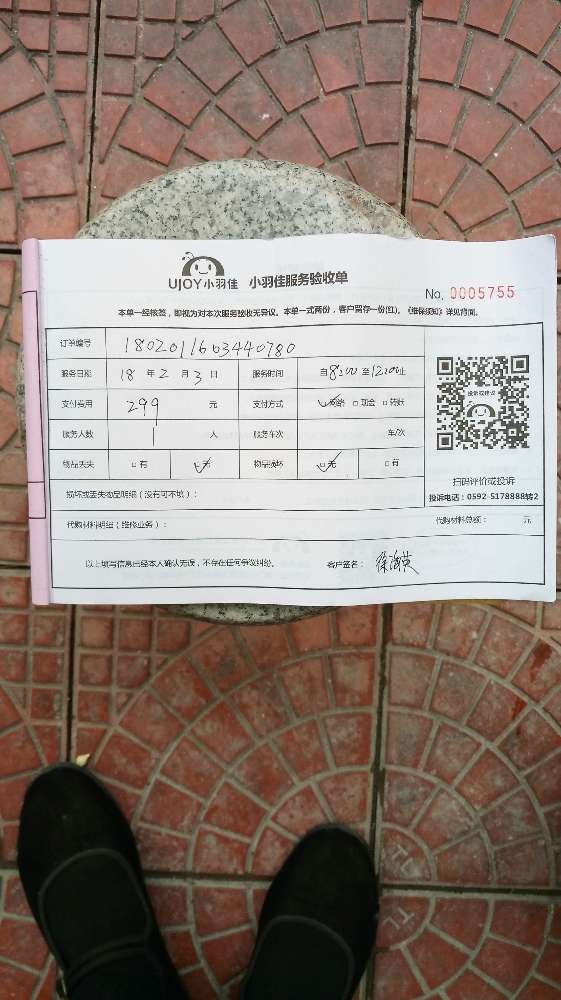 UJOY小羽佳 小羽佳服务验收单
No. 0005755
本单一经核签，即视为对本次服务验收无异议。本单一式两份，客户留存一份(红)。《维保须知》详见背面。
订单编号 1802011603440780
服务日期 18 年 2 月 3 日 服务时间 自8:00 至12:00止
支付费用 299 元 支付方式 ✓网络 □现金 □转账
服务人数 1 人 服务车次 车/次
物品丢失 □有 ✓无 物品损坏 ✓无 □有
投诉或建议
扫码评价或投诉
投诉电话：0592-5178888转2
损坏或丢失物品明细（没有可不填）：
代购材料明细（维修业务）： 代购材料总额： 元
以上填写信息已经本人确认无误，不存在任何争议纠纷。 客户签名： 徐海英
TL
TL